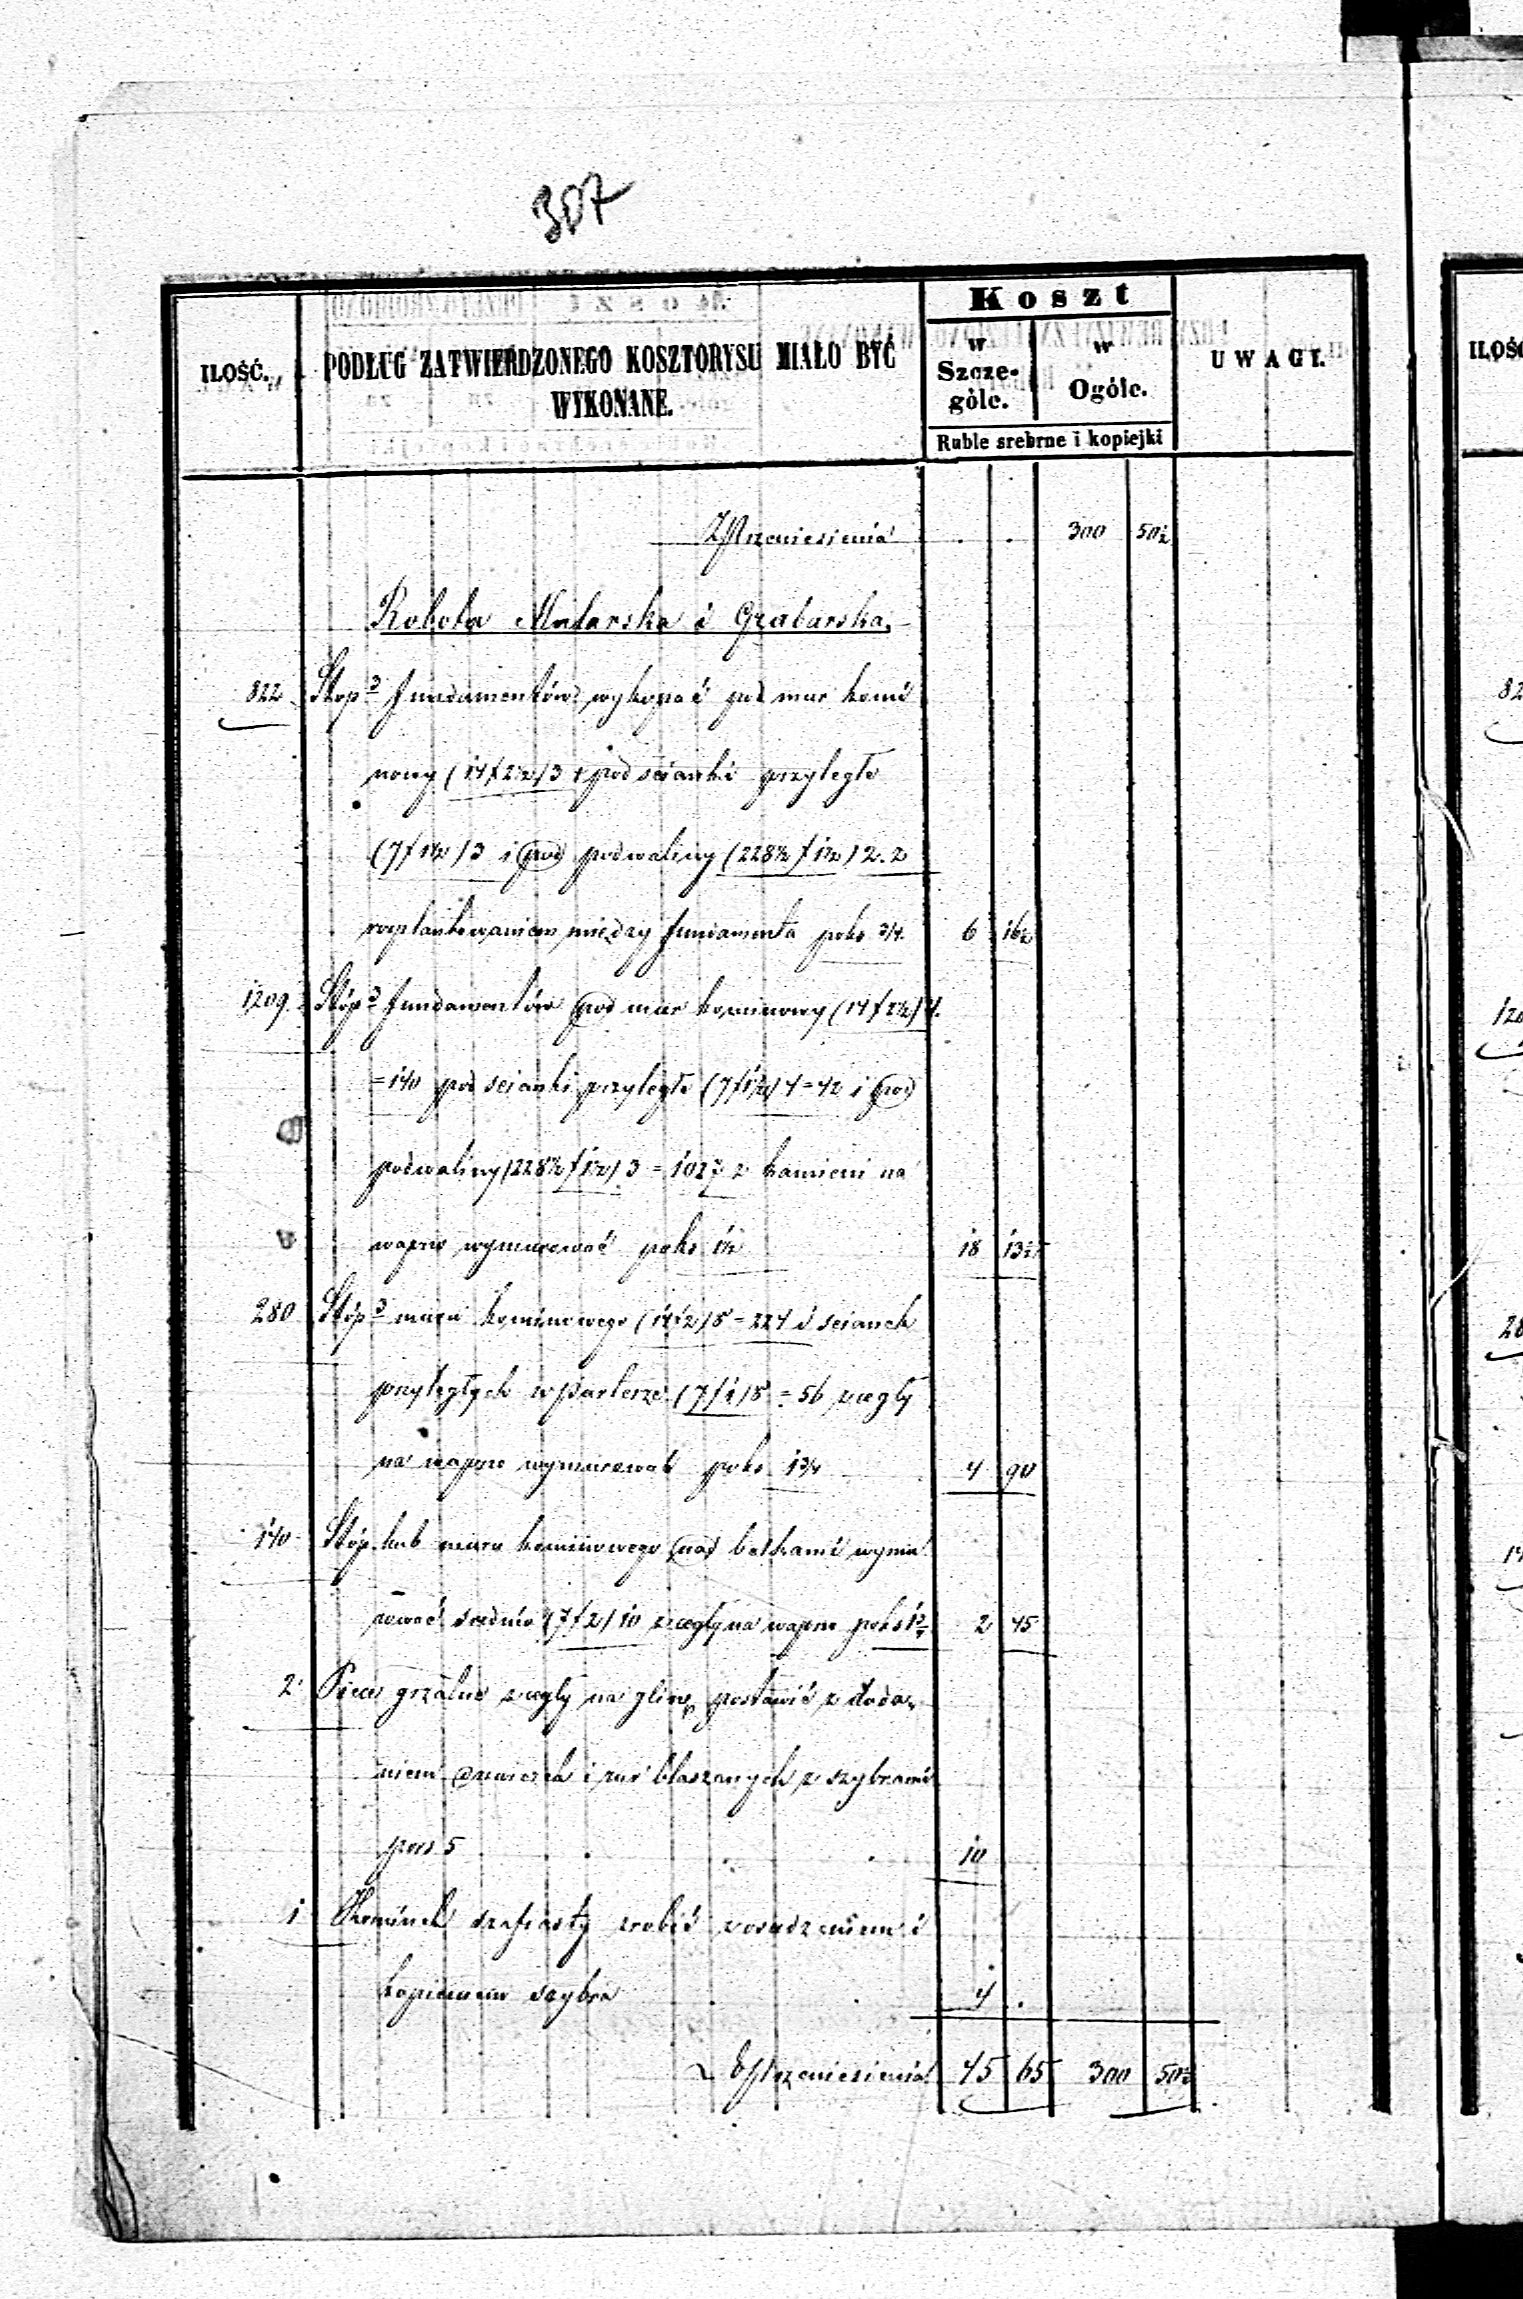 307
Koszt
ILOŚĆ.
PODŁUG ZATWIERDZONEGO KOSZTORYSU MIAŁO BYĆ
WYKONANE.
w
Szcze-
góle.
w
Ogóle.
UWAGI.
Ruble srebrne i kopiejki
Z Przeniesienia . . 300 50½
Robota Mularska i Grabarska,
822 Stóp 3 fundamentów wykopać pod mur komi
nowy (14/2½)3 i pod ścianki przyległe
(7/1½)3 i pod podwaliny (228½/1½)2. z
rozplantowaniem między fundamenta po ks 3/4. 6 16½
1209. Stóp 3 fundamentów pod mur kominowy (14/2½)4.
=140 pod scianki przyległe (7/1½)4=42 i pod
podwaliny (228½/1½)3=1027 z kamieni na
wapno wymurować po ks 1½ 18 13½
280 Stóp 3 muru kominowego (14/2)8=224 i scianek
przyległych w parterze (7/1)8=56 z cegły
na wapno wymurować po ks 1¾ 4 90
140 Stóp kub muru kominowego nad belkami wymu
rować srednio (7/2)10 z cegły na wapno po ks 1¾ 2 45
2 Piece grzalne z cegły na glinę postawić z doda-
niem drzwiczek i rur blaszanych z szybrami
po rs 5 . . . 10
1 Kominek szafiasty zrobić z osadzeniem i
kupieniem szybra . . 4 .
Do Przeniesienia 45 65 300 50½
ILOŚĆ
82
120
28
14